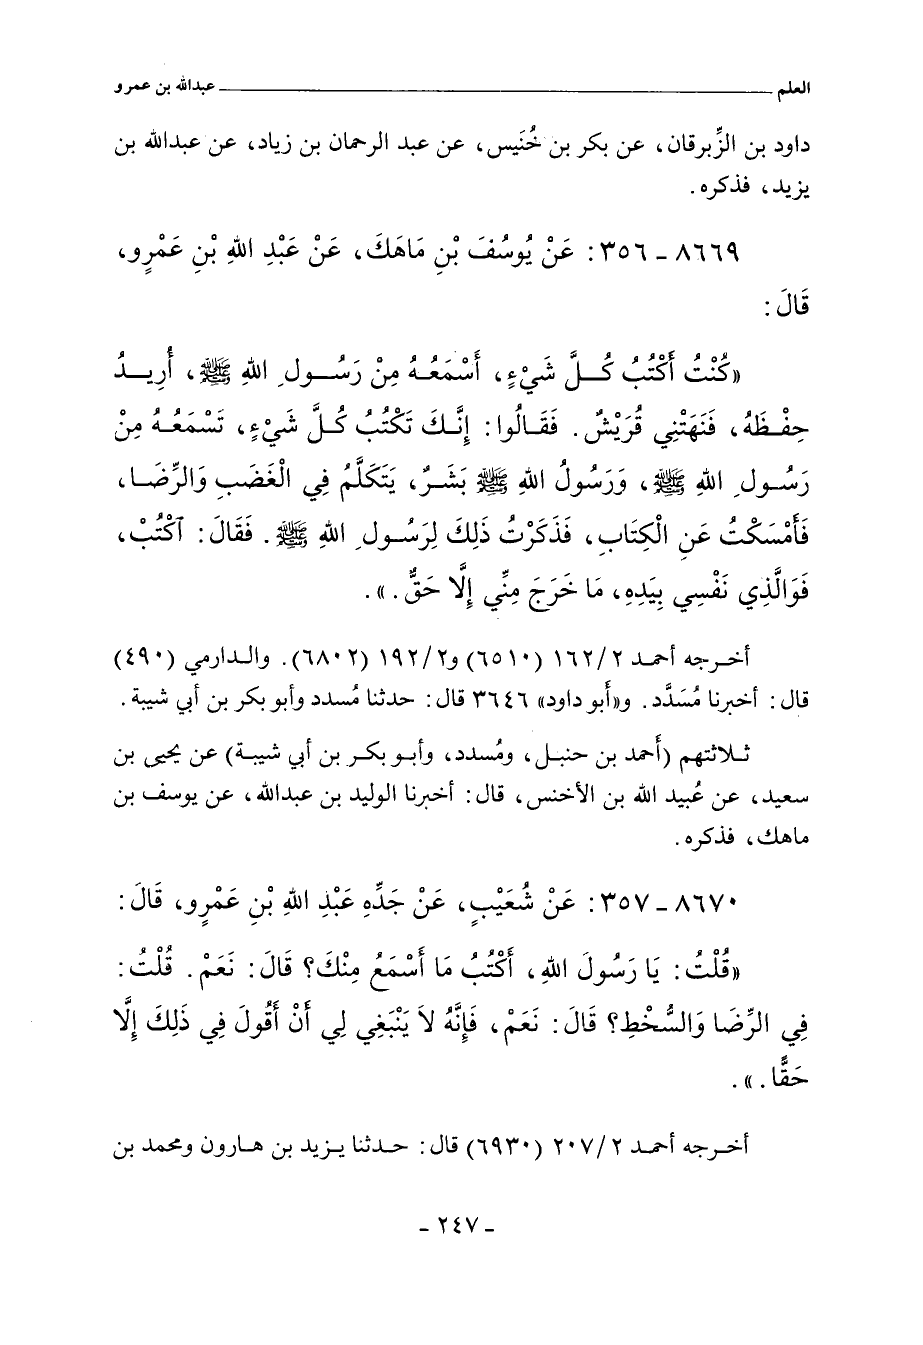 العلم ــــــــــــ عبدالله بن عمرو
داود بن الزِّبرقان، عن بكر بن خُنَيس، عن عبد الرحمان بن زياد، عن عبدالله بن
يزيد، فذكره.
٨٦٦٩ ـ ٣٥٦: عَنْ يُوسُفَ بْنِ مَاهَكَ، عَنْ عَبْدِ اللهِ بْنِ عَمْرٍو،
قَالَ:
«كُنْتُ أَكْتُبُ كُلَّ شَيْءٍ، أَسْمَعُهُ مِنْ رَسُولِ اللهِ ﷺ، أُرِيدُ
حِفْظَهُ، فَنَهَتْنِي قُرَيْشٌ. فَقَالُوا: إِنَّكَ تَكْتُبُ كُلَّ شَيْءٍ، تَسْمَعُهُ مِنْ
رَسُولِ اللهِ ﷺ، وَرَسُولُ اللهِ ﷺ بَشَرٌ، يَتَكَلَّمُ فِي الْغَضَبِ وَالرِّضَا،
فَأَمْسَكْتُ عَنِ الْكِتَابِ، فَذَكَرْتُ ذَلِكَ لِرَسُولِ اللهِ ﷺ. فَقَالَ: آكْتُبْ،
فَوَالَّذِي نَفْسِي بِيَدِهِ، مَا خَرَجَ مِنِّي إِلَّا حَقٌّ.».
أخرجه أحمد ٢/١٦٢ (٦٥١٠) و٢/١٩٢ (٦٨٠٢). والدارمي (٤٩٠)
قال: أخبرنا مُسَدَّد. و«أبو داود» ٣٦٤٦ قال: حدثنا مُسدد وأبو بكر بن أبي شيبة.
ثلاثتهم (أحمد بن حنبل، ومُسدد، وأبو بكر بن أبي شيبة) عن يحيى بن
سعيد، عن عُبيد الله بن الأخنس، قال: أخبرنا الوليد بن عبدالله، عن يوسف بن
ماهك، فذكره.
٨٦٧٠ ـ ٣٥٧: عَنْ شُعَيْبٍ، عَنْ جَدِّهِ عَبْدِ اللهِ بْنِ عَمْرٍو، قَالَ:
«قُلْتُ: يَا رَسُولَ اللهِ، أَكْتُبُ مَا أَسْمَعُ مِنْكَ؟ قَالَ: نَعَمْ. قُلْتُ:
فِي الرِّضَا وَالسُّخْطِ؟ قَالَ: نَعَمْ، فَإِنَّهُ لاَ يَنْبَغِي لِي أَنْ أَقُولَ فِي ذَلِكَ إِلَّا
حَقًّا.».
أخرجه أحمد ٢/٢٠٧ (٦٩٣٠) قال: حدثنا يزيد بن هارون ومحمد بن
ـ ٢٤٧ ـ